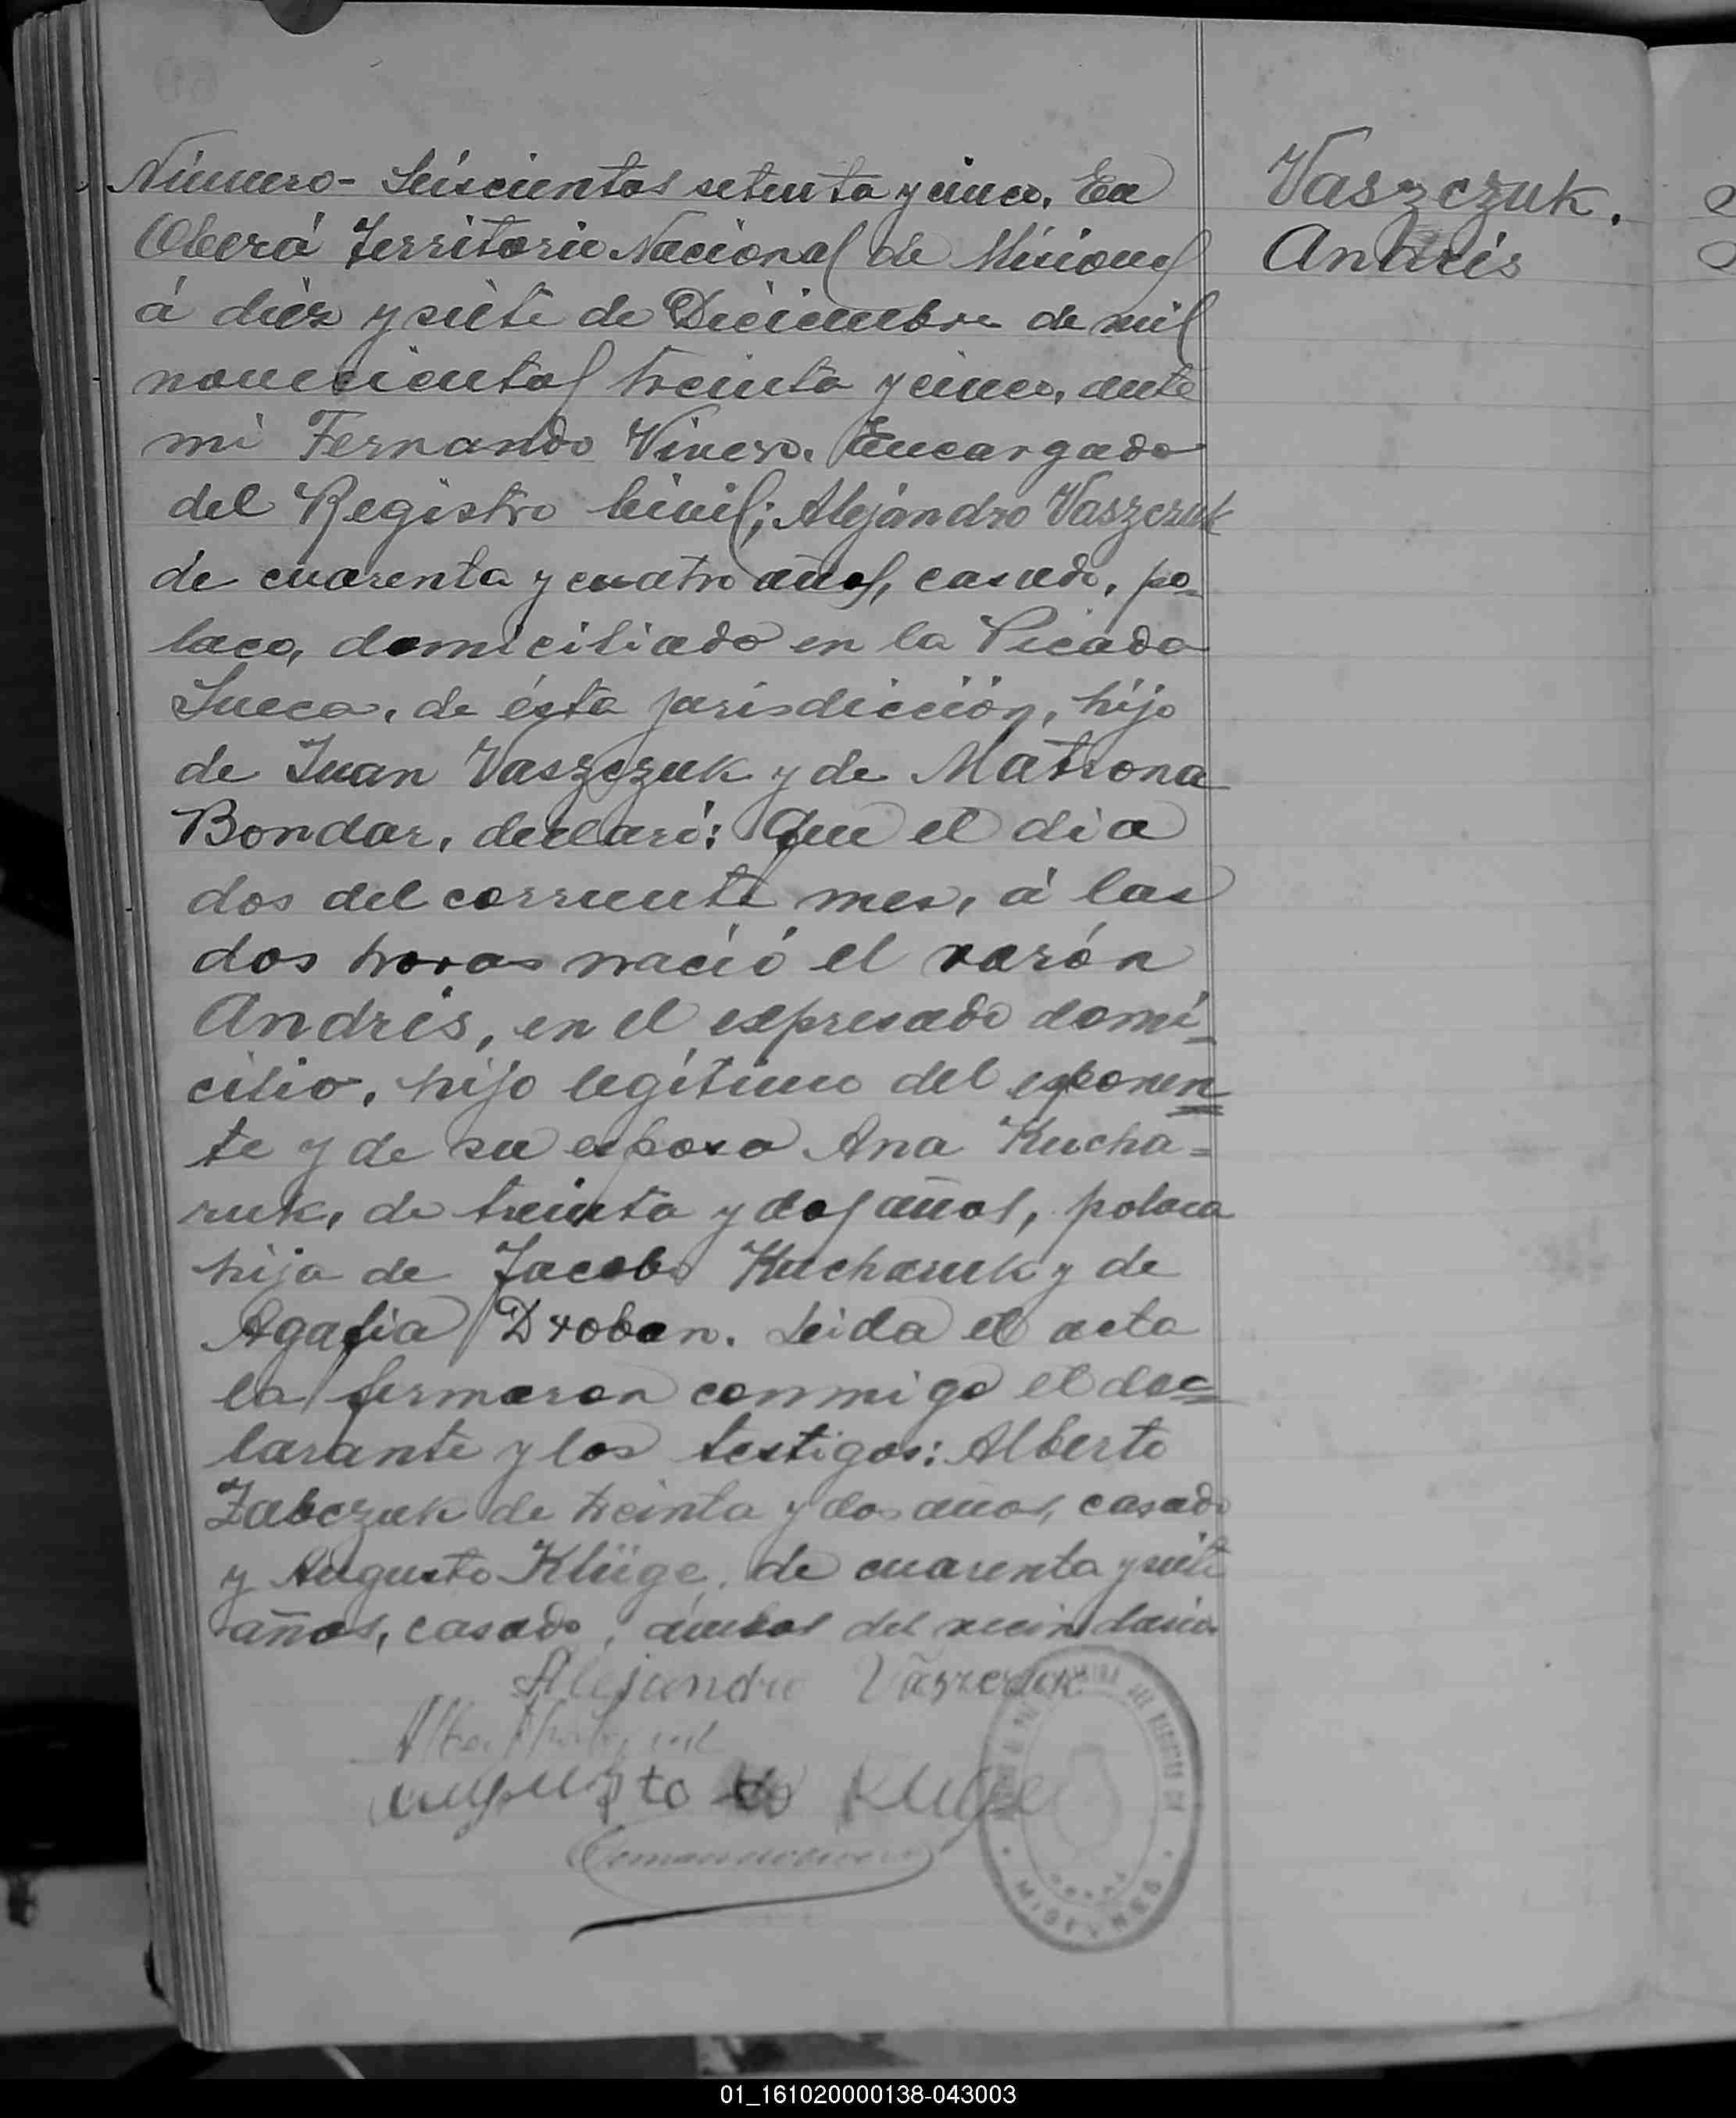 Número- Seiscientos setenta y cinco. En
Oberá Territorio Nacional de Misiones
á diez y siete de Diciembre de mil
novecientos treinta y cinco, ante
mi Fernando Vivero. Encargado
del Registro Civil; Alejándro Vaszczuk
de cuarenta y cuatro años, casado, po-
laco, domiciliado en la Picada
Sueca, de ésta jurisdicción, hijo
de Juan Vaszczuk y de Matrona
Bondar, declaró: Que el dia
dos del corriente mes, á las
dos horas nació el varón
Andrés, en el expresado domi-
cilio, hijo legítimo del exponen=
te y de su esposa Ana Kucha=
ruk, de treinta y dos años, polaca
hija de Jacobo Kucharuk y de
Agafia Droban. Leida el acta
la firmaron conmigo el dec=
larante y los testigos: Alberto
Zabczuk de treinta y dos años, casado
y Augusto Klüge, de cuarenta y siete
años, casado, ámbos del vecindario.
Alejandro Vaszczuk
Augusto Kluge
MISIONES
Vaszczuk.
Andrés
01_161020000138-043003